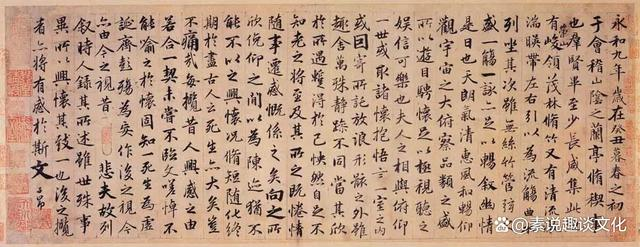 永和九年歲在癸丑暮春之初會
于會稽山陰之蘭亭脩稧事
也群賢畢至少長咸集此地
有崇山峻領茂林脩竹又有清流激
湍暎帶左右引以為流觴曲水
列坐其次雖無絲竹管弦之
盛一觴一詠亦足以暢敘幽情
是日也天朗氣清惠風和暢仰
觀宇宙之大俯察品類之盛
所以遊目騁懷足以極視聽之
娛信可樂也夫人之相與俯仰
一世或取諸懷抱悟言一室之內
或因寄所託放浪形骸之外雖
趣舍萬殊靜躁不同當其欣
於所遇暫得於己怏然自足不
知老之將至及其所之既惓情
隨事遷感慨係之矣向之所
欣俛仰之閒以為陳迹猶不
能不以之興懷況脩短隨化終
期於盡古人云死生亦大矣豈
不痛哉每攬昔人興感之由
若合一契未嘗不臨文嗟悼不
能喻之於懷固知一死生為虛
誕齊彭殤為妄作後之視今
亦由今之視昔悲夫故列
敘時人錄其所述雖世殊事
異所以興懷其致一也後之攬
者亦將有感於斯文
子昂
@素说趣谈文化